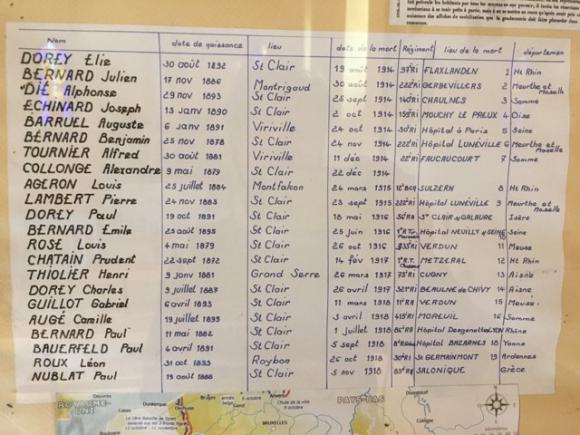 Nom date de naissance lieu date de la mort Régiment lieu de la mort département
DOREY Elie 30 août 1892 St Clair 19 août 1914 FLAXLANDEN 1 Ht Rhin
BERNARD Julien 17 nov 1886 Montrigaud 30 août 1914 GERBEVILLERS 2 Meurthe et Moselle
DIÉ Alphonse 29 nov 1893 St Clair 26 sept 1914 CHAULNES 3 Somme
ECHINARD Joseph 13 janv 1890 St Clair 2 oct 1914 MOUCHY LE PREUX 4 Oise
BARRUEL Auguste 6 janv 1891 Viriville 24 oct 1914 Hôpital à Paris 5 Seine
BERNARD Benjamin 25 nov 1878 St Clair 24 nov 1914 Hôpital LUNÉVILLE 6 Meurthe et Moselle
TOURNIER Alfred 30 août 1881 Viriville 11 déc 1914 FAUCAUCOURT 7 Somme
COLLONGE Alexandre 9 mai 1879 St Clair 22 déc 1914
AGERON Louis 25 juillet 1884 Montfalcon 24 mars 1915 SULZERN 8 Ht Rhin
LAMBERT Pierre 24 nov 1883 St Clair 23 sept 1915 Hôpital LUNÉVILLE 9 Meurthe et Moselle
DOREY Paul 19 oct 1891 St Clair 18 mai 1916 St CLAIR s/GALAURE Isère
BERNARD Emile 25 août 1895 St Clair 25 juin 1916 Hôpital NEUILLY s/SEINE Seine
ROSE Louis 4 mai 1879 St Clair 26 oct 1916 VERDUN 11 Meuse
CHATAIN Prudent 22 sept 1872 St Clair 14 fév 1917 METZERAL 12 Ht Rhin
THIOLIER Henri 9 janv 1881 Grand Serre 26 mars 1917 CUGNY 13 Aisne
DOREY Charles 9 juillet 1887 St Clair 26 avril 1917 BEAULNE de CHIVY 14 Aisne
GUILLOT Gabriel 6 avril 1893 St Clair 11 mars 1918 VERDUN 15 Meuse
AUGÉ Camille 19 juillet 1895 St Clair 3 avril 1918 MOREUIL 16 Somme
BERNARD Paul 11 mai 1882 St Clair 1 juillet 1918 Hôpital Desgenettes LYON Rhône
BAUERFELD Paul 4 avril 1891 St Clair 5 sept 1918 Hôpital BAZARNES 18 Yonne
ROUX Léon 31 oct Roybon 26 oct 1918 St GERMAINMONT 19 Ardennes
NUBLAT Paul 19 août 1888 St Clair 5 nov 1918 SALONIQUE Grèce
ROYAUME-UNI
PAYS-BAS
Dunkerque
Calais
BRUXELLES
Cologne